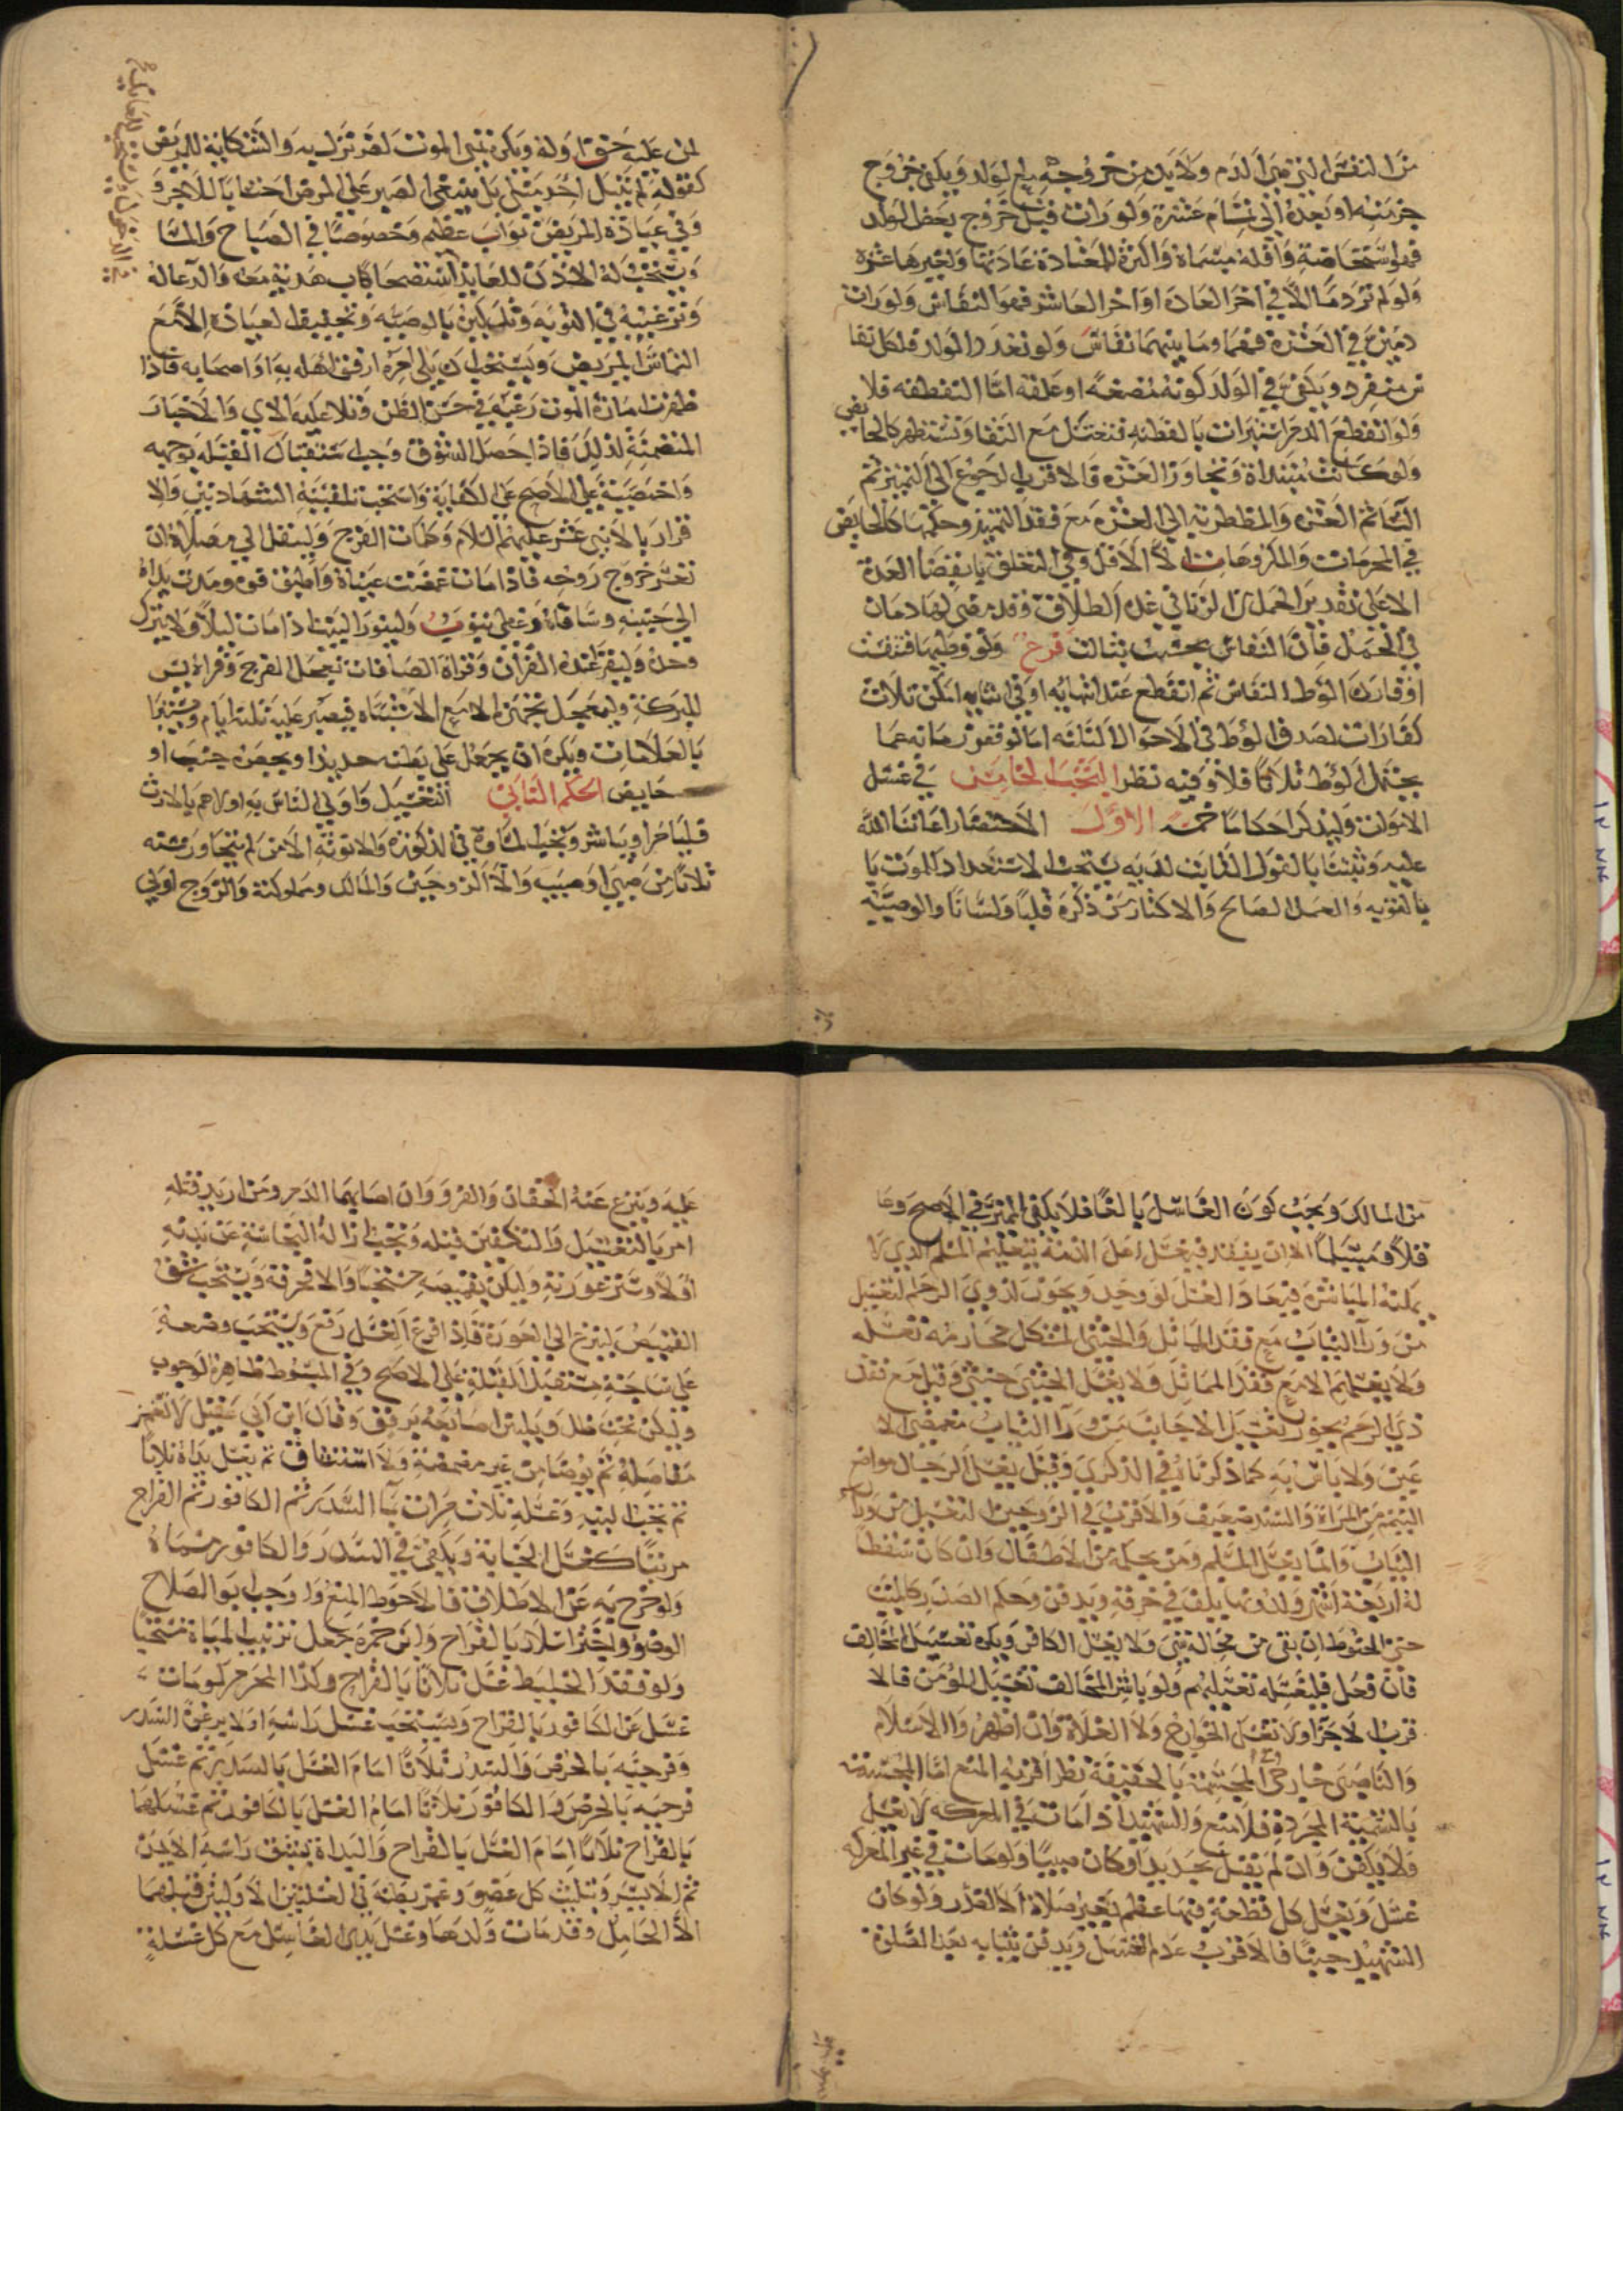 من النفس التي هي الدم ولابد من خروجه مع الولد ويكفي خروج
جزئه او بعده الى تمام عشرة ولورات قبل خروج بعض الولد
فهو استحاضة واقله مسماه واكثره للمعتادة عادتها ولغيرها عشرة
ولو لم تر دما الا في آخر العادة او آخر العاشر فهو النفاس ولورات
دمين في العشرة فهما وما بينهما نفاس ولو تعدد الولد فلكل نفا
س منفرد ويكفي في الولد كونه مضغة او علقة اما النطفة فلا
ولو انقطع الدم استبرات بالقطنة فتغتسل مع النقا وتستظهر كالحايض
ولو كانت مبتداة وتجاوز العشرة فالاقرب الرجوع الى التميز ثم
النساء ثم العشرة والمضطربة الى العشرة مع فقد التميز وحكمها كالحايض
في المحرمات والمكروهات الا الاقل وفي التعلق بانقضا العدة
الا على تقدير الحمل من الزنا في عدة الطلاق فقد مضى لهما دمان
في الحمل فان النفاس يحسب بثالث فرع ولو وطيها فنفست
او قارن الوطؤ النفاس ثم انقطع عند انتهائه او في اثنايه امكن ثلاث
كفارات لصدق الوطؤ في الاحوال الثلثة اما لو قصر زمانه عما
يحتمل الوطؤ ثلاثا فلا وفيه نظر البحث الخامس في غسل
الاموات وليذكر احكاما خمسة الاول الاحتضار اعاننا الله
عليه وثبتنا بالقول الثابت لديه يستحب الاستعداد للموت با
بالتوبه والعمل الصالح والاكثار من ذكره قلبا ولسانا والوصية
لمن عليه حق او له ويكره تمني الموت لضر نزل به والشكاية للمريض
كقوله لم يبتل احد مثلي بل ينبغي الصبر على المرض احتسابا للاجر و
وفي عيادة المريض ثواب عظيم وخصوصا في الصباح والمسا
ويستحب له الاذن للعايد استصحاب هدية معه والدعا له
وترغيبه في التوبه وليكن بالوصية وتخفيف العيادة الا مع
التماس المريض ويستحب ان يلي امره ارفق اهله به او اصحابه فاذا
ظهرت امارة الموت رغبه في حسن الظن وتلا عليه الاي والاخبار
المتضمنة لذلك فاذا حصل السوق وجب استقبال القبلة بوجهه
واخمصيه على الاصح على الكفاية واستحب تلقينه الشهادتين والا
قرار بالاثنى عشر عليهم السلام وكلمات الفرج ولينقل الى مصلاه ان
تعسر خروج روحه فاذا مات غمضت عيناه واطبق فوه ومدت يداه
الى جنبيه وساقاه وغطي بثوب ولينور البيت اذا مات ليلا ولا يترك
وحده وليقرا عنده القران وقراة الصافات تعجل الفرج وقراة يس
للبركة وليعجل تجهيزه الا مع الاشتباه فيصبر عليه ثلثة ايام ويستبرا
بالعلامات ويكره ان يجعل على بطنه حديدا ويحضره جنب او
حايض الحكم الثاني التغسيل واولى الناس به اولاهم بالارث
قليبا حرا ويباشر ويجب المساواة في الذكورة والانوثة الا من لم يتجاوز سنه
ثلاثا من صبي او صبيه والا الزوجين والمالك ومملوكته والزوج اولى
من المالك ويجب كون الغاسل بالغا فلا يكفي المميز في الاصح وعا
قلا ومسلما الا ان يفقد فيغسل اهل الذمة بتعليم المسلم الذي لا
يمكنه المباشرة فيعاد الغسل لو وجد ويجوز لذوي الرحم التغسيل
من ورا الثياب مع فقد المماثل والخنثى المشكل محارمه تغسله
ولا يغسلهم الا مع فقد المماثل ولا يغسل الخنثى خنثى وقيل مع فقد
ذي الرحم يجوز تغسيل الاجانب من ورا الثياب مغمضي الا
عين ولا باس به كما ذكرناه في الذكرى وقيل يغسل الرجال مواضع
التيمم من المراة والسند ضعيف والاقرب في الزوجين التغسيل من ورآ
الثياب وانما يغسل المسلم ومن بحكمه من الاطفال وان كان سقطا
له اربعة اشهر ولدونها يلف في خرقة ويدفن وحكم الصدر كالميت
حتى الحنوط ان بقي من محاله شي ولا يغسل الكافر ويكره تغسيل المخالف
فان فعل فليغسله تغسيلهم ولو باشر المخالف تغسيل المؤمن فالا
قرب الاجزا ولا تغسل الخوارج ولا الغلاة وان اظهروا الاسلام
والناصبي خارجي المجسمة بالحقيقة نظر اقربه المنع اما المجسمة
بالتسمية المجردة فلا منع والشهيد اذا مات في المعركه لا يغسل
ولا يكفن وان لم يقتل بحديد او كان صبيا ولو مات في غير المعركه
غسل ويغسل كل قطعة فيها عظم بغير صلاة الا الصدر ولو كان
الشهيد جنبا فالاقرب عدم الغسل ويدفن بثيابه بعد الصلوة
عليه وينزع عنه الخفان والفرو وان اصابهما الدم ومن اريد قتله
امر بالتغسيل والتكفين قبله ويجب ازالة النجاسة عن بدنه
اولا وستر عورته وليكن بقميصه مستحبا والا فخرقة ويستحب شق
القميص لينزع الى العورة فاذا افرغ الغسل رفع ويستحب وضعه
على ساجة مستقبل القبلة على الاصح وفي المبسوط ظاهره الوجوب
وليكن تحت ظل ويلين اصابعه برفق وقال ابن ابي عقيل لا تغمز
مفاصله ثم يوضا من غير مضمضة ولا استنشاق ثم يغسل يداه ثلاثا
ثم تجب النيه وغسله ثلاث مرات بما السدر ثم الكافور ثم القراح
مرتبا كغسل الجنابة ويكفي في السدر والكافور مسماه
ولو خرج به عن الاطلاق فالاحوط المنع واوجب ابو الصلاح
الوضؤ واجتزا سلار بالقراح وابن حمزة جعل ترتيب المياه مستحبا
ولو فقد الخليط غسل ثلاثا بالقراح وكذا المحرم لو مات
غسل عن الكافور بالقراح ويستحب غسل راسه اولا برغوة السدر
وفرجيه بالحرض والسدر ثلاثا امام الغسل بالسدر ثم غسل
فرجيه بالحرض والكافور ثلاثا امام الغسل بالكافور ثم غسلهما
بالقراح ثلاثا امام الغسل بالقراح والبداة بشق راسه الايمن
ثم الايسر وتثليث كل عضو وغمز بطنه في الغسلتين الاوليين قبلهما
الا الحامل وقد مات ولدها وغسل يدي الغاسل مع كل غسلة